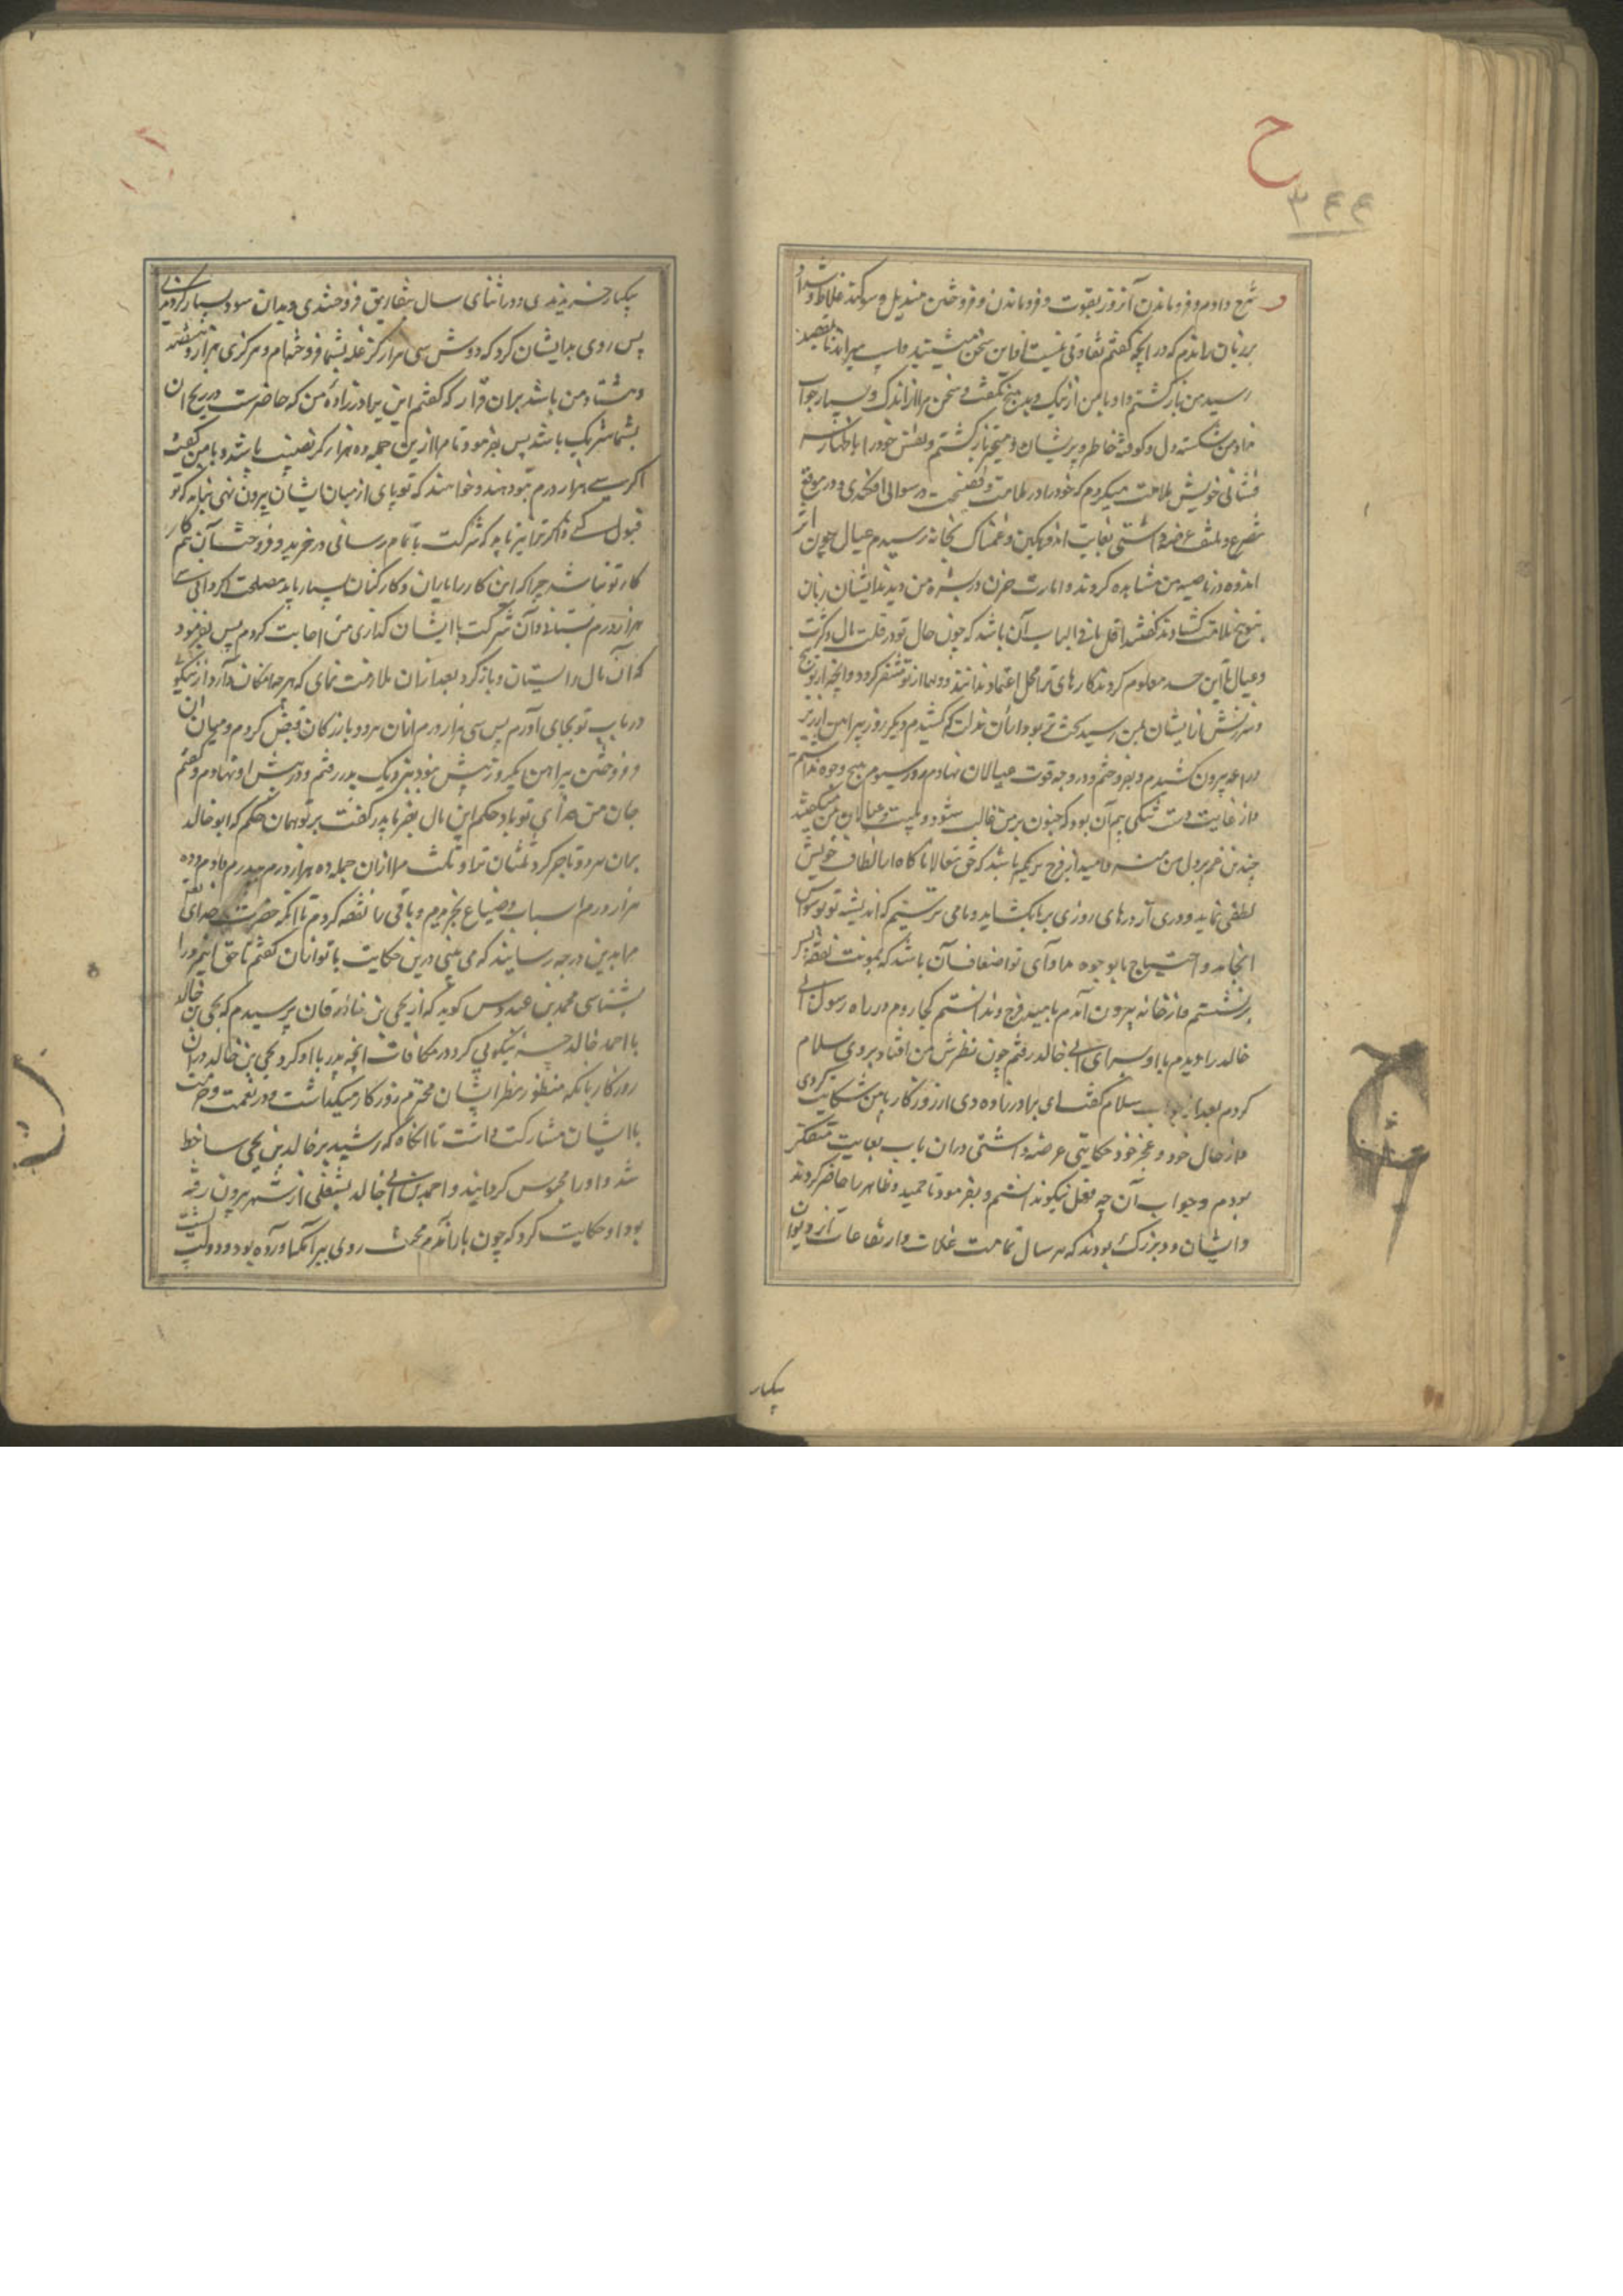 ح
۳۴۴
شرح دادم و فرو ماندن آنروز بقوت و فرو ماندن و فروختن مندیل و سوکند غلاظ و شداد
بر زبان راندم که در انچه کفتم تفاوتی نیست او این سخن میشنید و اسب میراند تا بمقصد
رسید من بازکشتم و او با من از نیک و بد هیچ نکفت و سخن مرا از اندک و بسیار جواب
نداد من شکسته دل و کوفته خاطر و پریشان و متحیر بازکشتم و نفس خود را باظهار
فشانی خویش ملامت میکردم که خود را در ملامت و فضیحت و رسوائی افکندی و در موقع
تضرع و بغایت اندوهکین و غمناک بخانه رسیدم عیال چون اثر
اندوه در ناصیه من مشاهده کردند و امارت حزن در بشره من دیدند ایشان زبان
بتوبیخ و ملامت کشادند کفتند اقل ما فی الباب آن باشد که چون حال تو در قلت مال و کثرت
و عیال تا این حد معلوم کردند کارهای ترا محل اعتماد ندانند و دلها از تو متنفر کردد و انچه از توبیخ
و سرزنش از ایشان بمن رسید سخت تر بود از آن مذلت که کشیدم و دیکر روز پیراهن از زیر
دراعه بیرون کشیدم و بفروختم و در وجه قوت عیالان نهادم روز سیوم هیچ وجوه نداشتم
و از غایت دست تنکی بیم آن بود که جنون بر من غالب شود و عیالان بمن میکفتند
چندین غم بر دل من منه و امید از فرج بر مکیر باشد که حق تعالی ناکاه از الطاف خویش
لطفی نماید و دری از درهای روزی بر ما بکشاید و ما می ترسیم که اندیشه تو بوسواس
انجامد و احتیاج ما بوجوه مداوای تو اضعاف آن باشد که بمونت نفقه پس
برنشستم و از خانه بیرون آمدم بامید فرج و ندانستم کجا روم در راه رسول ابی
خالد را دیدم با او بسرای ابی خالد رفتم چون نظرش بر من افتاد بر وی سلام
کردم بعد از جواب سلام کفت ای برادرزاده دی از روزکار با من شکایت کردی
و از حال خود و عجز خود حکایتی عرضه داشتی در آن باب بغایت متفکر
بودم و جواب آن جه فعل نیکو ندانستم و بفرمود تا حمید و ظاهر را حاضر کردند
و ایشان دو بزرک بودند که هر سال تمامت غلات و ارتفاعات از دیوان
یکبار
یکبار خریدندی و در اثنای سال بتفاریق فروختندی و بدان سود بسیار کردندی
پس روی بدیشان کرد که دوش سی هزار کر غله بشما فروخته‌ام و هر کری هزار و هفتصد
و هشتاد من باشد بر آن قرار که کفتم این برادرزاده من که حاضرست در ربح آن
بشما شریک باشد پس بفرمود تا مرا ازین جمله ده هزار کر نصیب باشد و با من کفت
اکر سی هزار درم بتو دهند و خواهند که تو پای از میان ایشان بیرون نهی بباید که تو
قبول کنی و اکر ترا نیز باید که شرکت باتمام رسانی در خرید و فروخت آن هم
کار تو نباشد چرا که این کار را یاران و کارکنان بسیار باید مصلحت اکر دانی سی
هزار درم بستانی و آن شرکت با ایشان کذاری من اجابت کردم پس بفرمود
که آن مال را بستان و بازکرد بعد از آن ملازمت نمای که هر چه امکان دارد از نیکوئی
در باب تو بجای آورم پس سی هزار درم از آن هر دو بازرکان قبض کردم و میان آن
و فروختن پیراهن یکروز بیش نبود بنزدیک پدر رفتم و در پیش او نهادم و کفتم
جان من فدای تو باد حکم این مال بفرما پدر کفت بر تو همان حکم که ابو خالد
بر آن هر دو تاجر کرد ثلثان ترا و ثلث مرا از آن جمله ده هزار درم بپدرم دادم و ده
هزار درم اسباب و ضیاع بخریدم و باقی را نفقه کردم تا آنکه حضرت خدای تعالی
مرا بدین درجه رسانید که می بینی و این حکایت با تو از آن کفتم تا حق این مرد را
بشناسی محمد بن عبدوس کوید که از یحیی بن خاقان پرسیدم که یحیی بن خالد
با احمد خالد جه نیکوئی کرد در مکافات انچه پدر با او کرد یحیی بن خالد در آن
روزکار با آنکه منظور نظر ایشان محترم روزکار میکذاشت و در نعمت و حرمت
با ایشان مشارکت داشت تا آنکاه که رشید بر خالد بن یحیی ساخط
شد و او را محبوس کردانید و احمد بن ابی خالد بشغلی از شهر بیرون رفته
بود او حکایت کرد که چون باز آمدم محنت روی ببرامکه آورده بود و دولت پشت